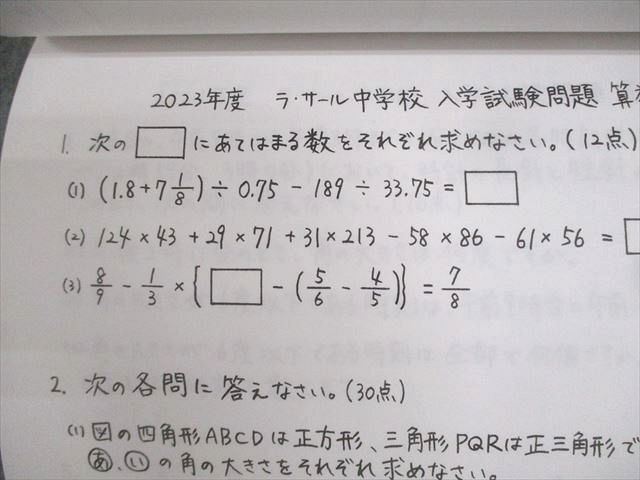 2023年度 ラ・サール中学校 入学試験問題 算
1. 次の□にあてはまる数をそれぞれ求めなさい。(12点)
(1) (1.8+7 1/8)÷0.75-189÷33.75=□
(2) 124×43+29×71+31×213-58×86-61×56=
(3) 8/9-1/3×{□-(5/6-4/5)}=7/8
2. 次の各問に答えなさい。(30点)
(1) 図の四角形ABCDは正方形、三角形PQRは正三角形で
あ、いの角の大きさをそれぞれ求めなさい。